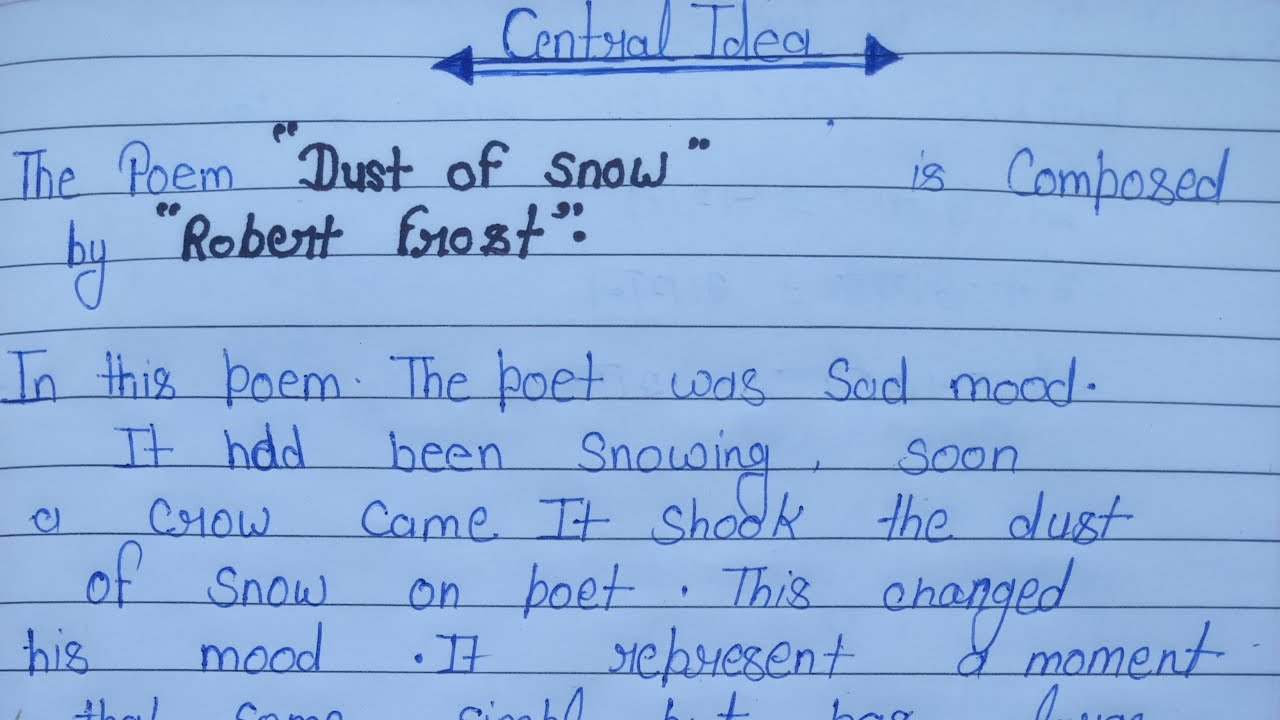 Central Idea
The Poem "Dust of snow" is Composed
by "Robert frost".
In this poem. The poet was Sad mood.
It had been Snowing, soon
a crow came It shook the dust
of snow on poet. This changed
his mood. It represent a moment